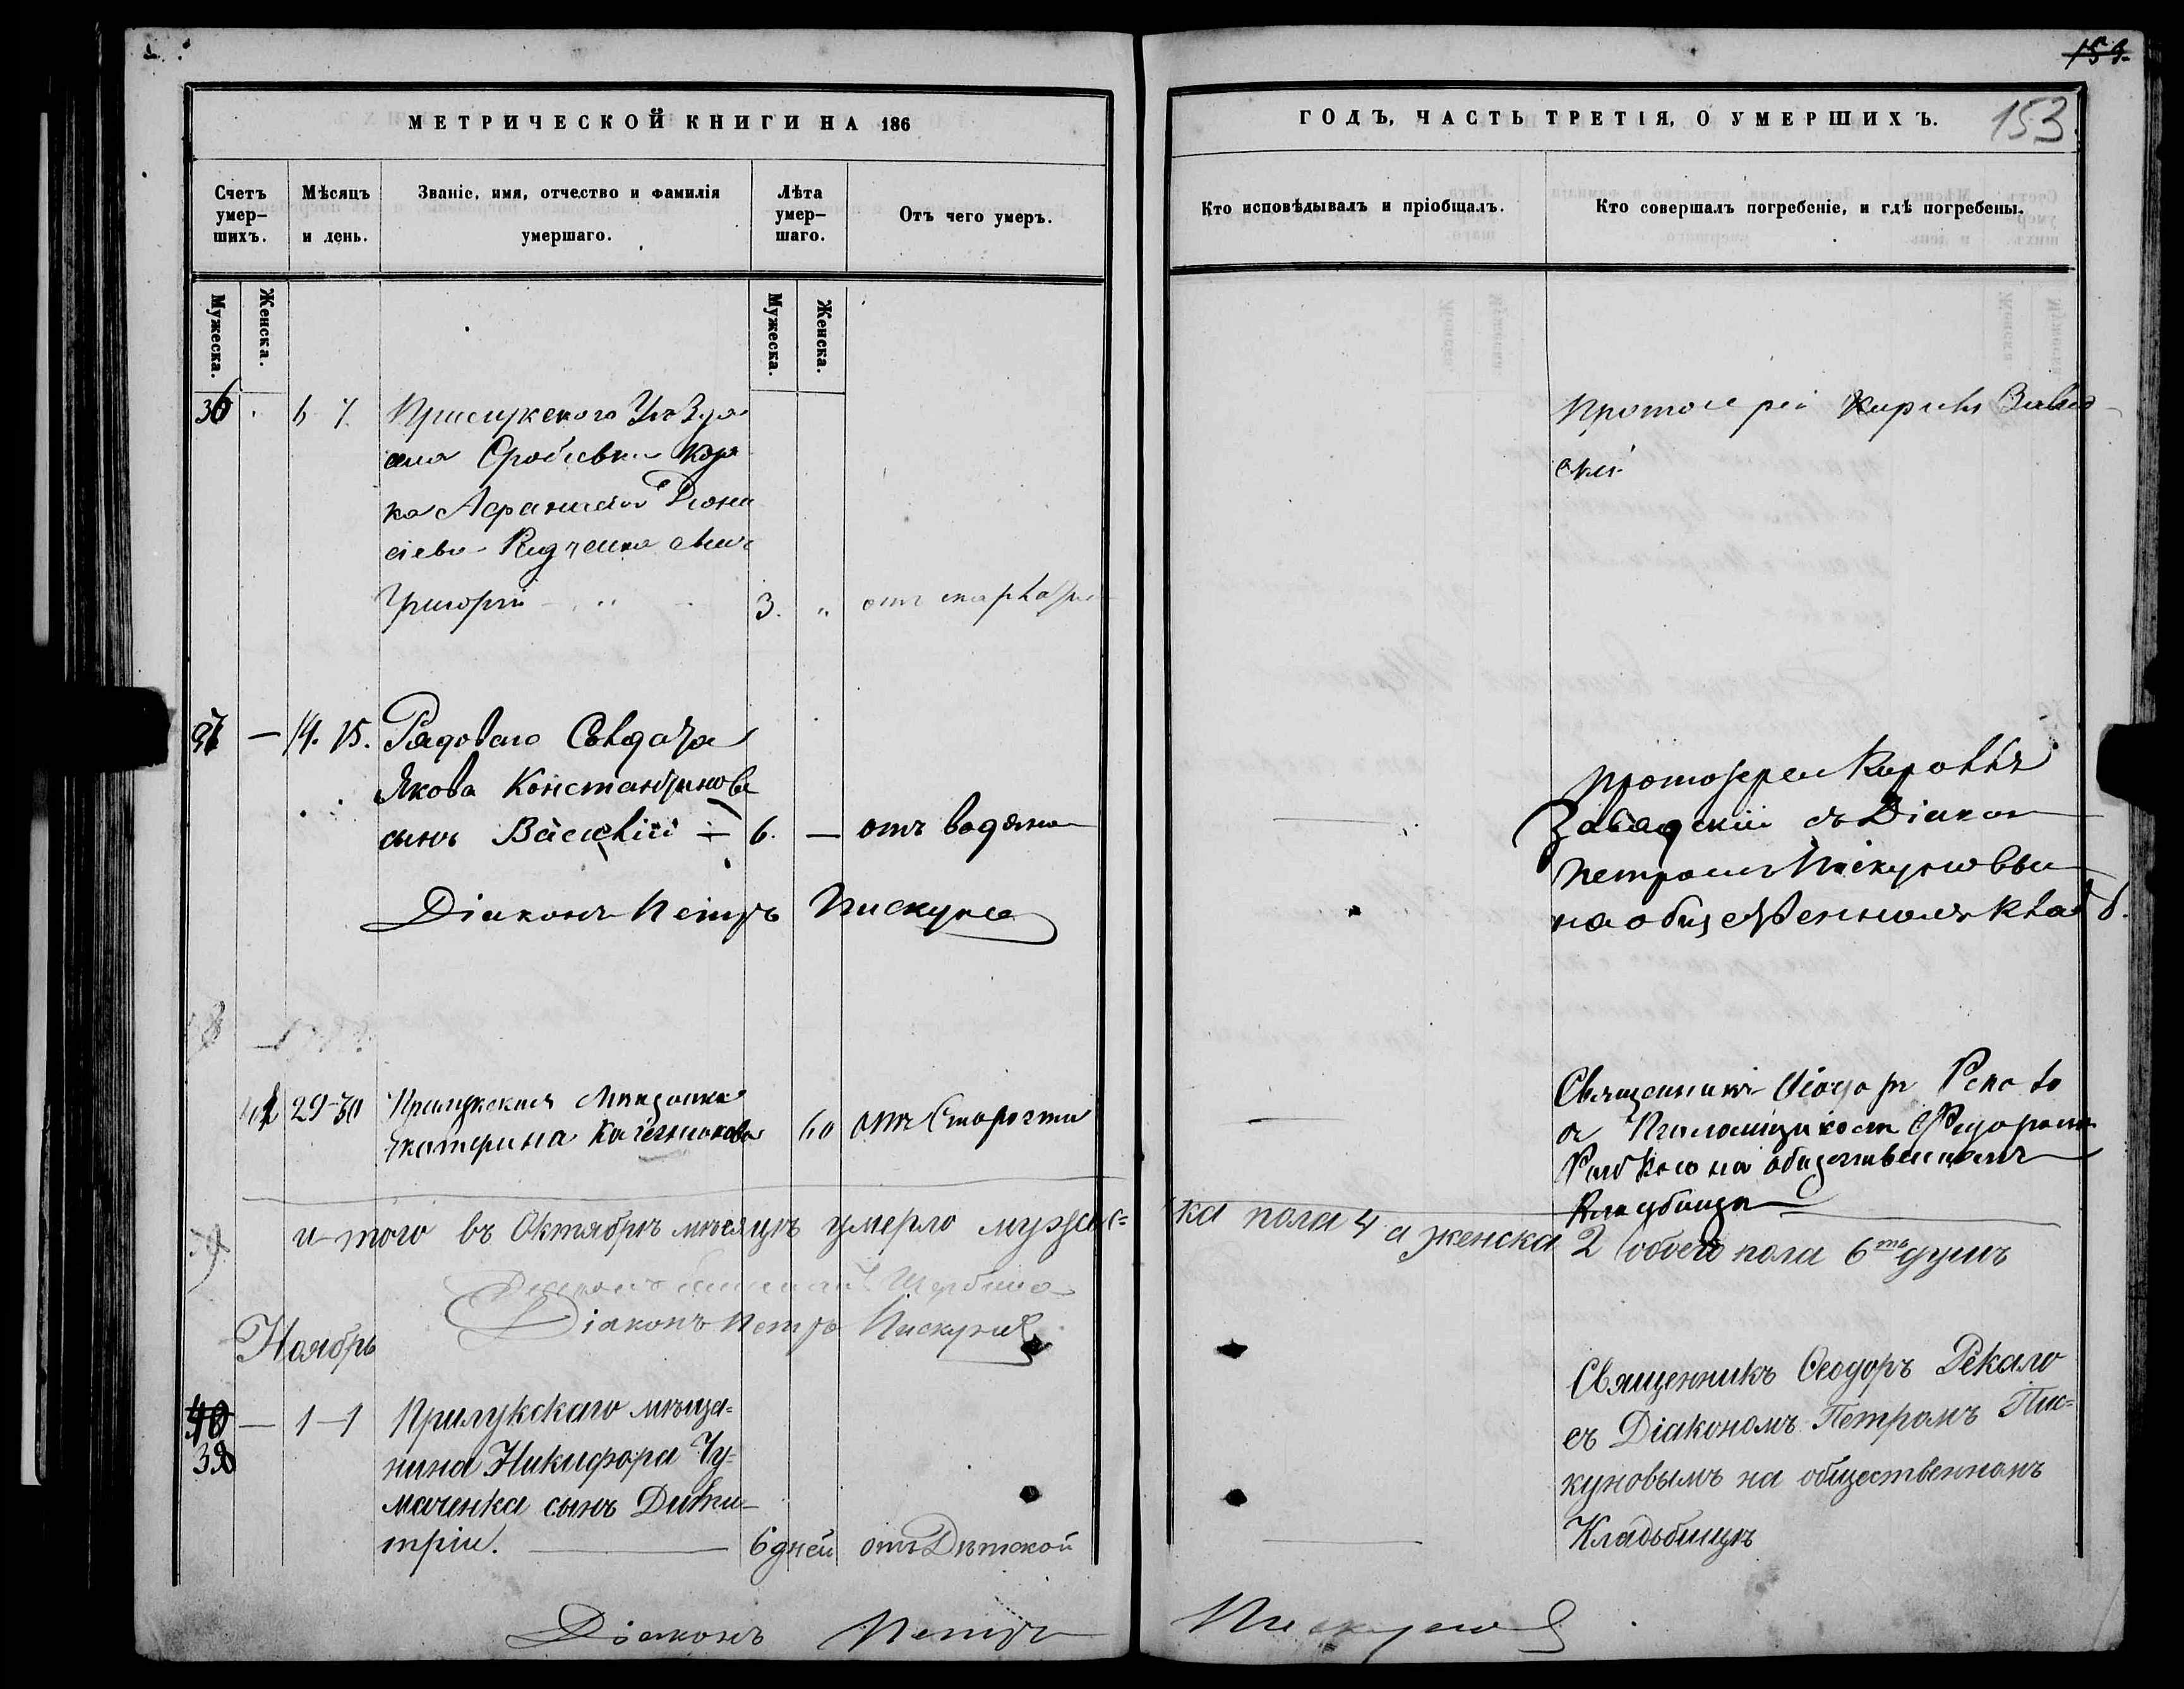 153
МЕТРИЧЕСКОЙ КНИГИ НА 186
ГОДЪ, ЧАСТЬ ТРЕТІЯ, О УМЕРШИХЪ.
153
Счетъ умер-шихъ.
Мѣсяцъ и день.
Званіе, имя, отчество и фамилія умершаго.
Лѣта умер-шаго.
Отъ чего умеръ.
Кто исповѣдывалъ и пріобщалъ.
Кто совершалъ погребеніе, и гдѣ погребены.
Мужеска.
Женска.
Мужеска.
Женска.
36 6 7. Прилукского Уѣзда
села
ка Діони
сіева сынъ
Григорій 3. " отъ
Протоіерей Кирилъ Завад-
скій
37 — 14. 15. Рядоваго Солдата
Якова Константинова
сынъ Василій — 6. — отъ водяни
Діаконъ Петръ Пискунов
Протоіерей Кириллъ
Завадскій съ Діакон
Петромъ Пискуновым
на общественномъ кладб.
29-30 Прилукская Мещанка
Екатерина 60 отъ Старости
Священникъ Ѳеодоръ Рекало
съ Пономаремъ Ѳедоромъ
на общественномъ
Кладбищѣ
и того въ Октябрѣ мѣсяцѣ умерло мужес=
ка пола 4 а женска 2 обоего пола 6ть душъ
Діаконъ Петръ Пискунов
Ноябрь
40 — 1-1 Прилукскаго мѣща=
39 нина Никифора Чу=
маченка сынъ Дими-
трій. 6 дней отъ Дѣтской
Священникъ Ѳеодоръ Рекало
съ Діакономъ Петромъ Пис=
куновымъ на общественномъ
Кладьбищѣ
Діаконъ Петръ Пискунов